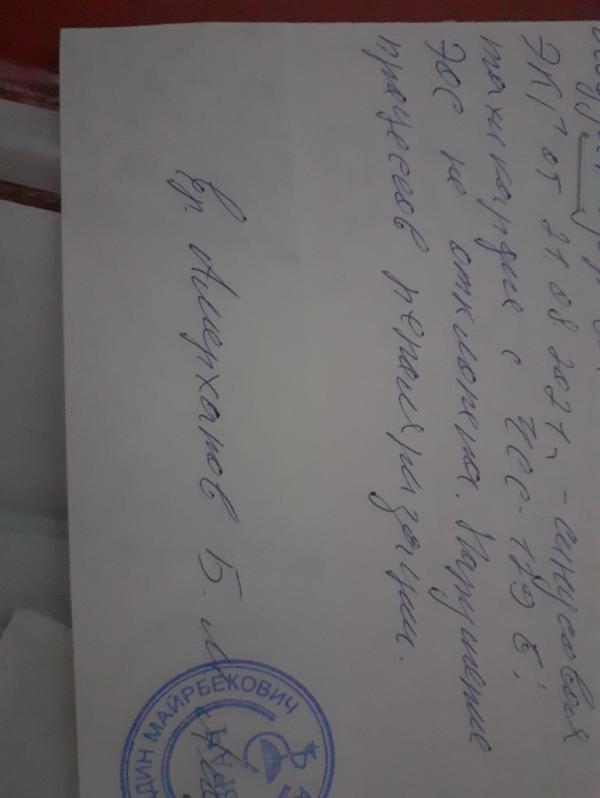 ЭКГ от 21.08.2021г - синусовая
тахикардия с ЧСС-139 б'.
ЭОС не отклонена. Нарушение
процессов реполяризации.
Вр. Амерханов Б. М.
ДИН МАЙРБЕКОВИЧ